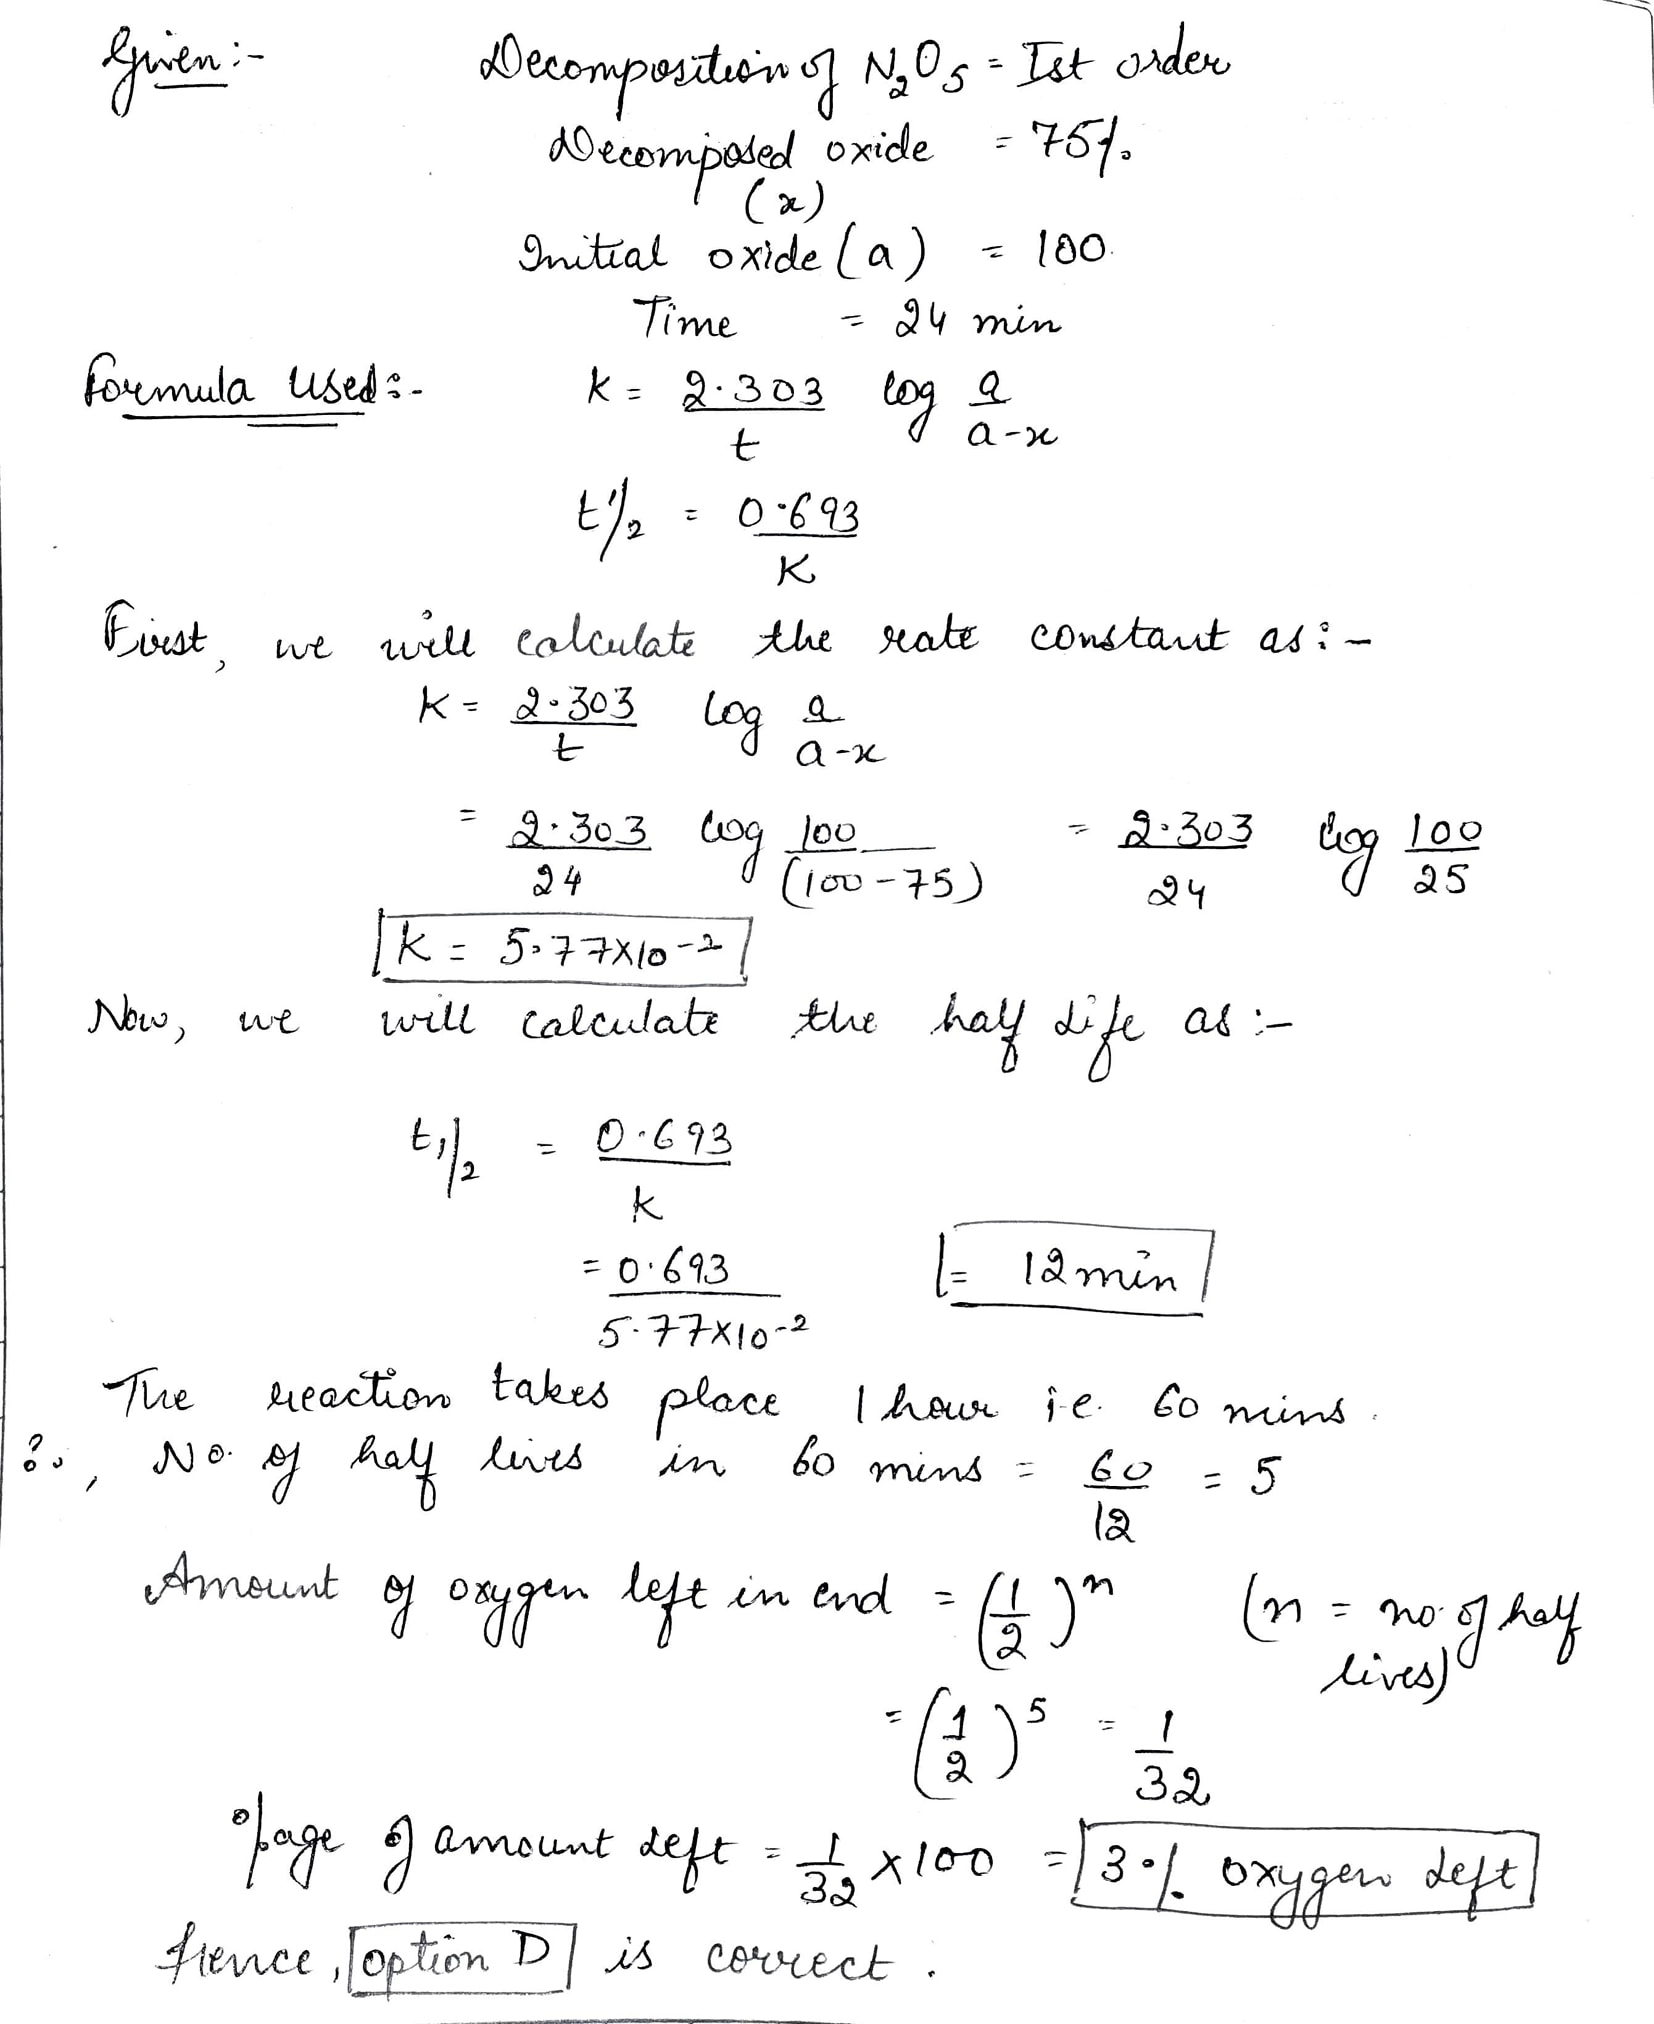 Given :- Decomposition of N2O5 = Ist order
Decomposed oxide = 75%.
(x)
Initial oxide (a) = 100.
Time = 24 min
Formula Used :- K = 2.303/t log a/a-x
t1/2 = 0.693/K
First, we will calculate the rate constant as :-
K = 2.303/t log a/a-x
= 2.303/24 log 100/(100-75) = 2.303/24 log 100/25
K = 5.77×10-2
Now, we will calculate the half life as :-
t1/2 = 0.693/k
= 0.693/5.77×10-2 = 12 min
The reaction takes place 1 hour i.e. 60 mins.
∴, No. of half lives in 60 mins = 60/12 = 5
Amount of oxygen left in end = (1/2)n (n = no. of half
lives)
= (1/2)5 = 1/32
%age of amount left = 1/32 × 100 = 3% oxygen left
Hence, option D is correct.